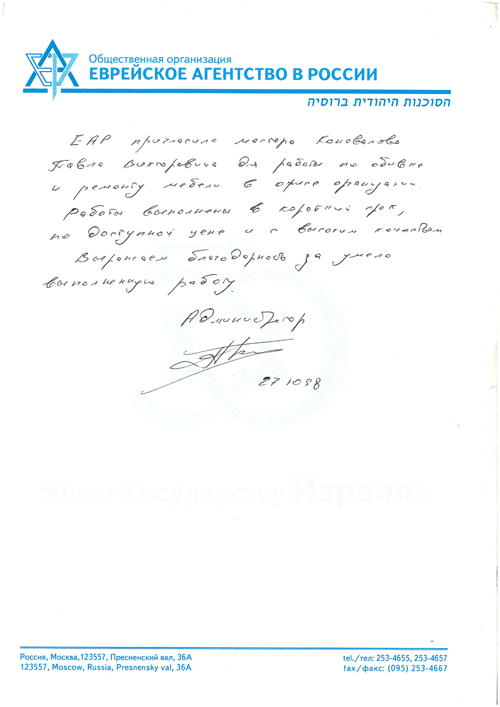 ЕАР
Общественная организация
ЕВРЕЙСКОЕ АГЕНТСТВО В РОССИИ
הסוכנות היהודית ברוסיה
ЕАР пригласило мастера Коновалова
Павла Викторовича для работы по обивке
и ремонту мебели в офисе организации.
Работы выполнены в короткий срок,
по доступной цене и с высоким качеством
Выражаем благодарность за умело
выполненную работу.
Администратор
27 10 98
50 лет Государству Израиль
Россия, Москва,123557, Пресненский вал, 36А
123557, Moscow, Russia, Presnensky val, 36A
tel./тел: 253-4655, 253-4657
fax/факс: (095) 253-4667